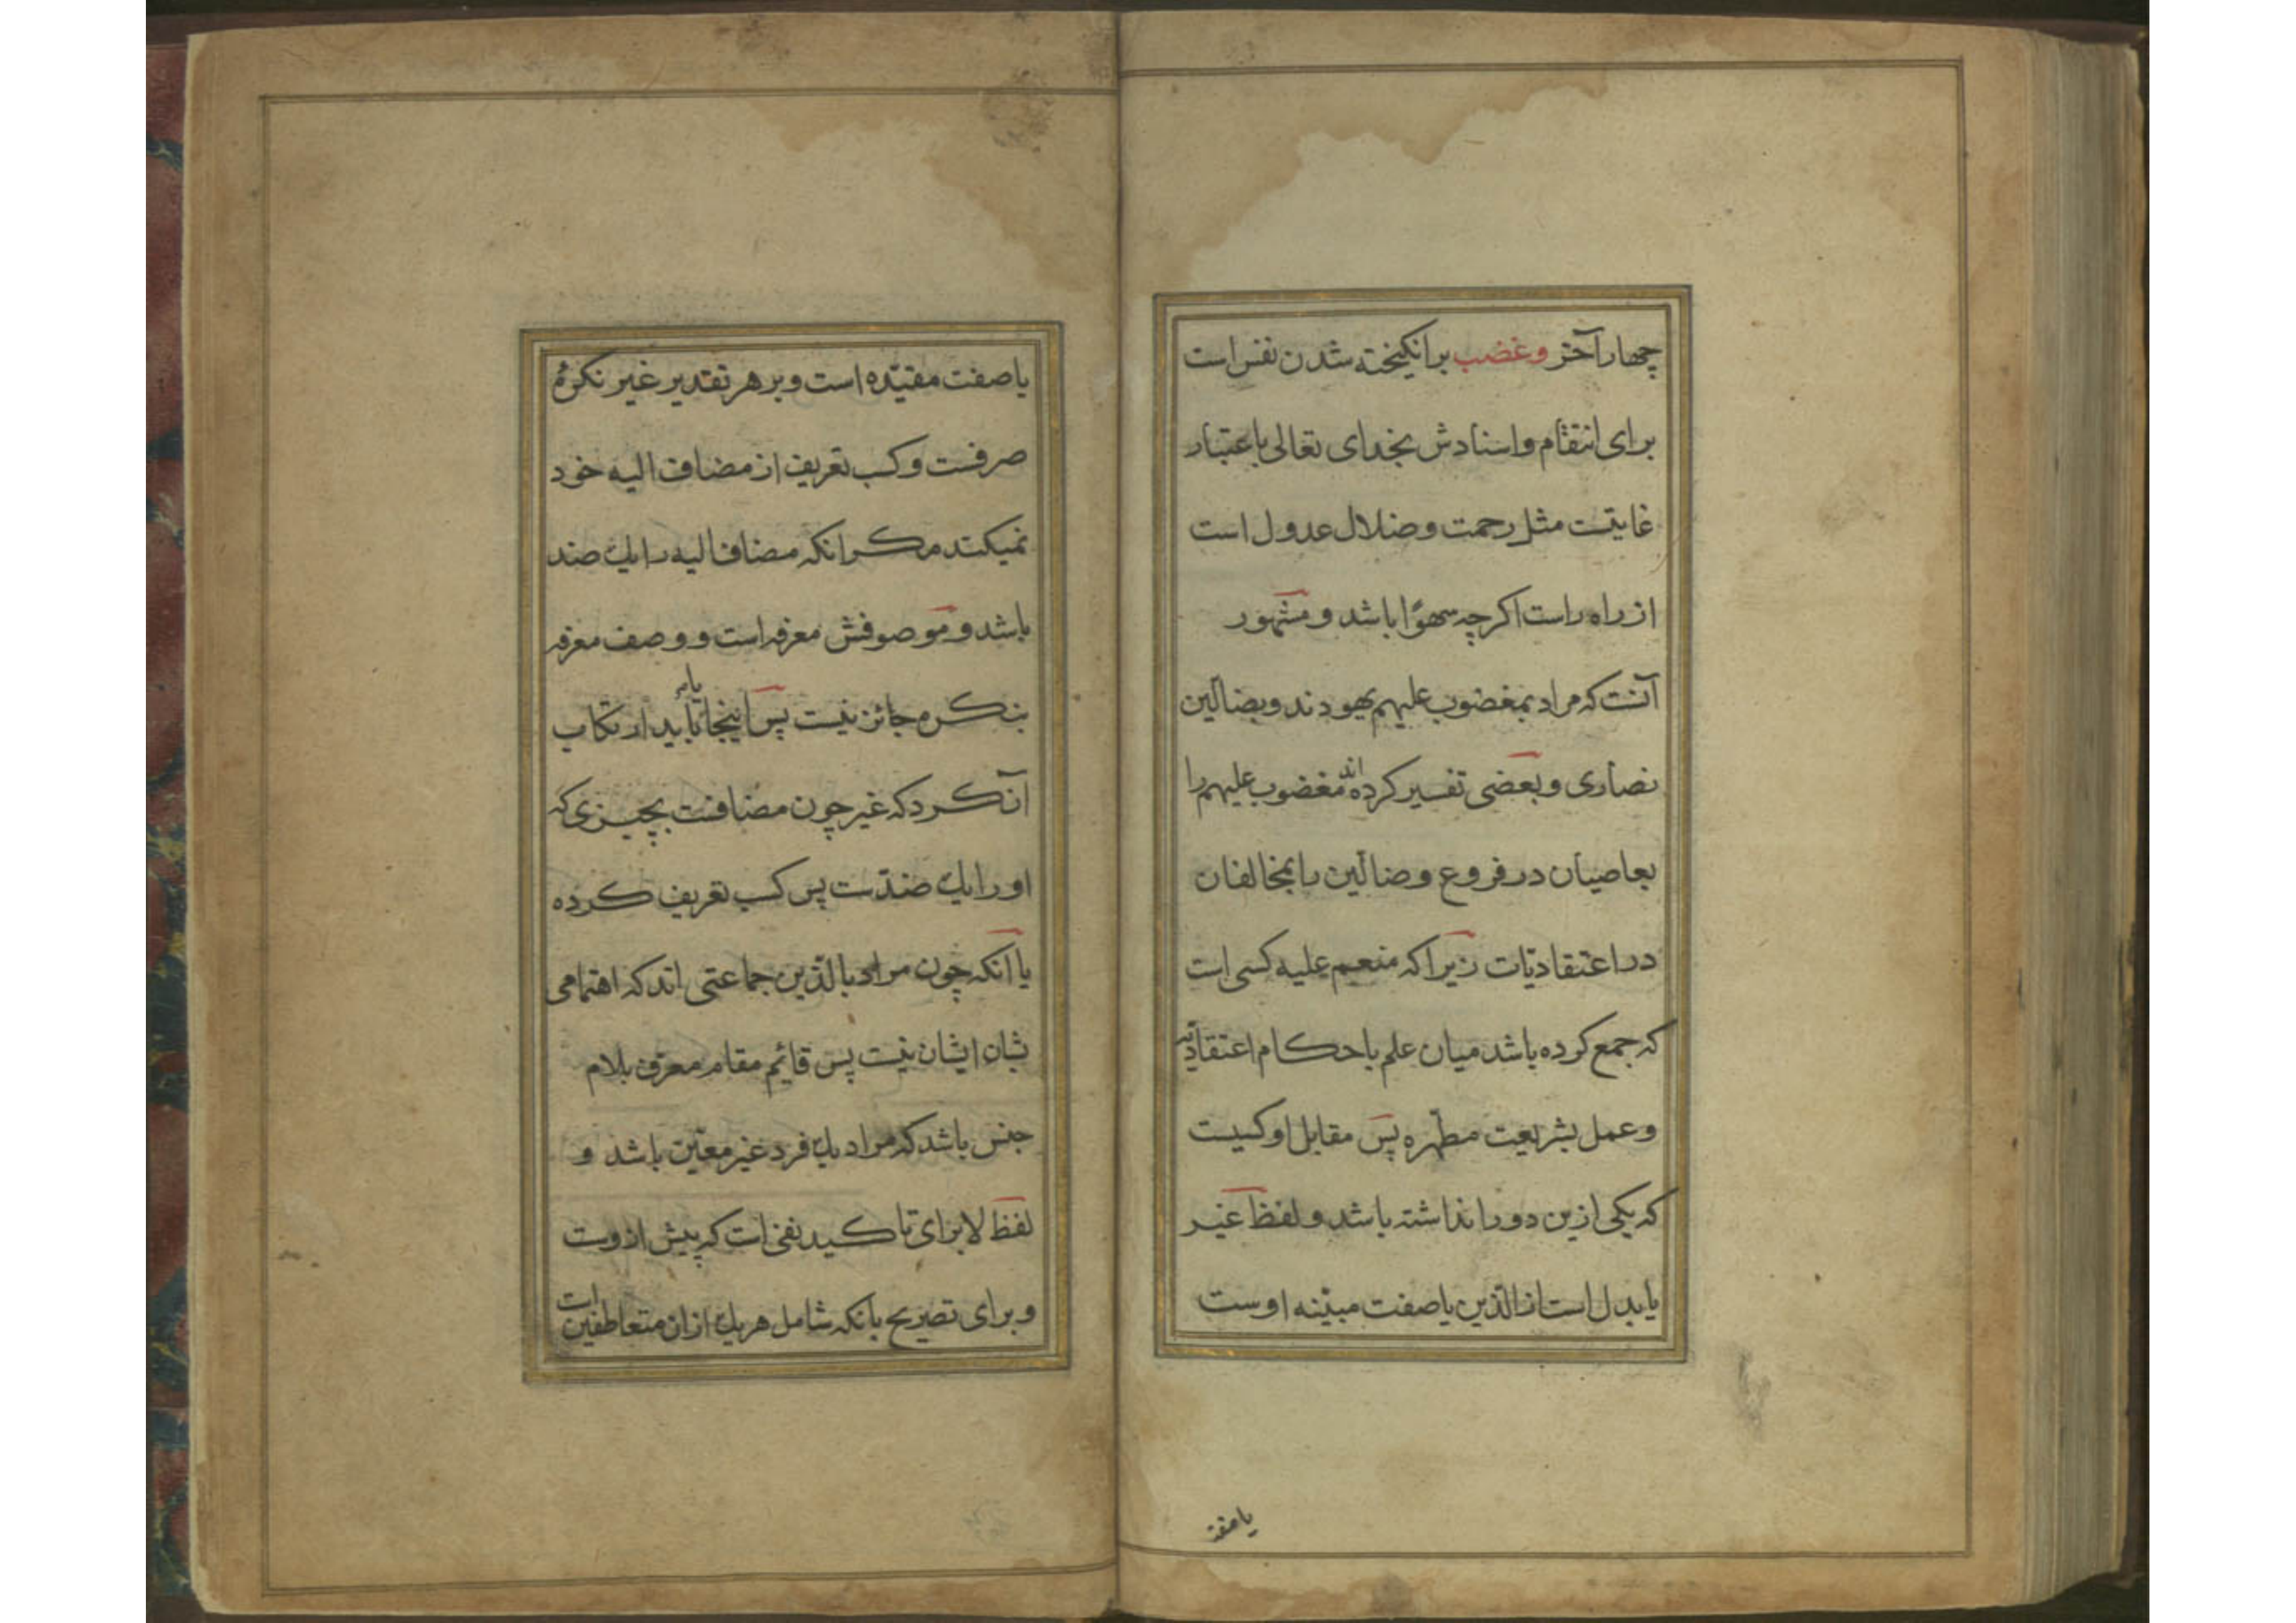 چهار آخر وغضب برانکیخته شدن نفس است
برای انتقام واسنادش بخدای تعالی باعتبار
غایتست مثل رحمت وضلال عدول است
از راه راست اکرچه سهوًا باشد و مشهور
آنست که مراد بمغضوب علیهم یهودند وبضالّین
نصاری و بعضی تفسیر کرده اند مغضوب علیهم را
بعاصیان در فروع وضالّین را بمخالفان
در اعتقادیّات زیرا که منعم علیه کسی است
که جمع کرده باشد میان علم باحکام اعتقادیّه
وعمل بشریعت مطهّره پس مقابل او کسیست
که یکی ازین دو را نداشته باشد و لفظ غیر
یا بدل است از الّذین یا صفت مبیّنه اوست
یا صفت
یا صفت مقیّده است و بر هر تقدیر غیر نکرهٔ
صرفست و کسب تعریف از مضاف الیه خود
نمیکند مکر انکه مضاف الیه را یک ضد
باشد و موصوفش معرفه است و وصف معرفه
بنکره جائز نیست پس اینجا یا باید ارتکاب
آن کرد که غیر چون مضافست بچیزی که
او را یک ضدّست پس کسب تعریف کرده
یا انکه چون مراد بالّذین جماعتی اند که اهتمامی
بشان ایشان نیست پس قائم مقام معرف بلام
جنس باشد که مراد یک فرد غیر معیّن باشد و
لفظ لا برای تاکید نفی است که پیش ازوست
و برای تصریح بانکه شامل هر یک ازان متعاطفین است